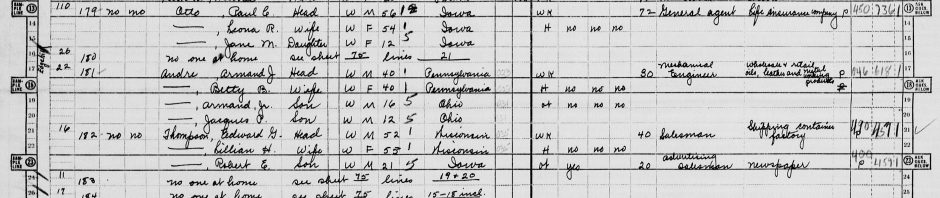 13 110 179 no no Otto Paul E. Head W M 56 1 Iowa WK 72 General agent Life Insurance company P 450 736 1 13
——, Leona R. Wife W F 54 5 Iowa H no no no
——, Jane M. Daughter W F 12 5 Iowa
26 180 no one at home see sheet 75 lines 21
22 181 Andre, Armand J Head W M 40 1 Pennsylvania WK 30 mechanical Engineer wholesale & retail oils, leather and metal working products P 046 618 1
18 ——, Betty B. Wife W F 40 1 Pennsylvania H no no no 18
19 ——, Armand, Jr. Son W M 16 5 Ohio ot no no no 19
20 ——, Jacques P. Son W M 12 5 Ohio
16 182 no no Thompson, Edward G. Head W M 52 1 Wisconsin WK 40 Salesman Shipping container factory P 490 21
22 ——, Lillian H. Wife W F 55 1 Wisconsin H no no no
23 ——, Robert E. Son W M 21 5 Iowa ot yes 20 advertising salesman newspaper P 23
24 11 183 no one at home see sheet 75 lines 19 + 20 24
25 17 184 no one at home see sheet 75 lines 15-18 incl. 25